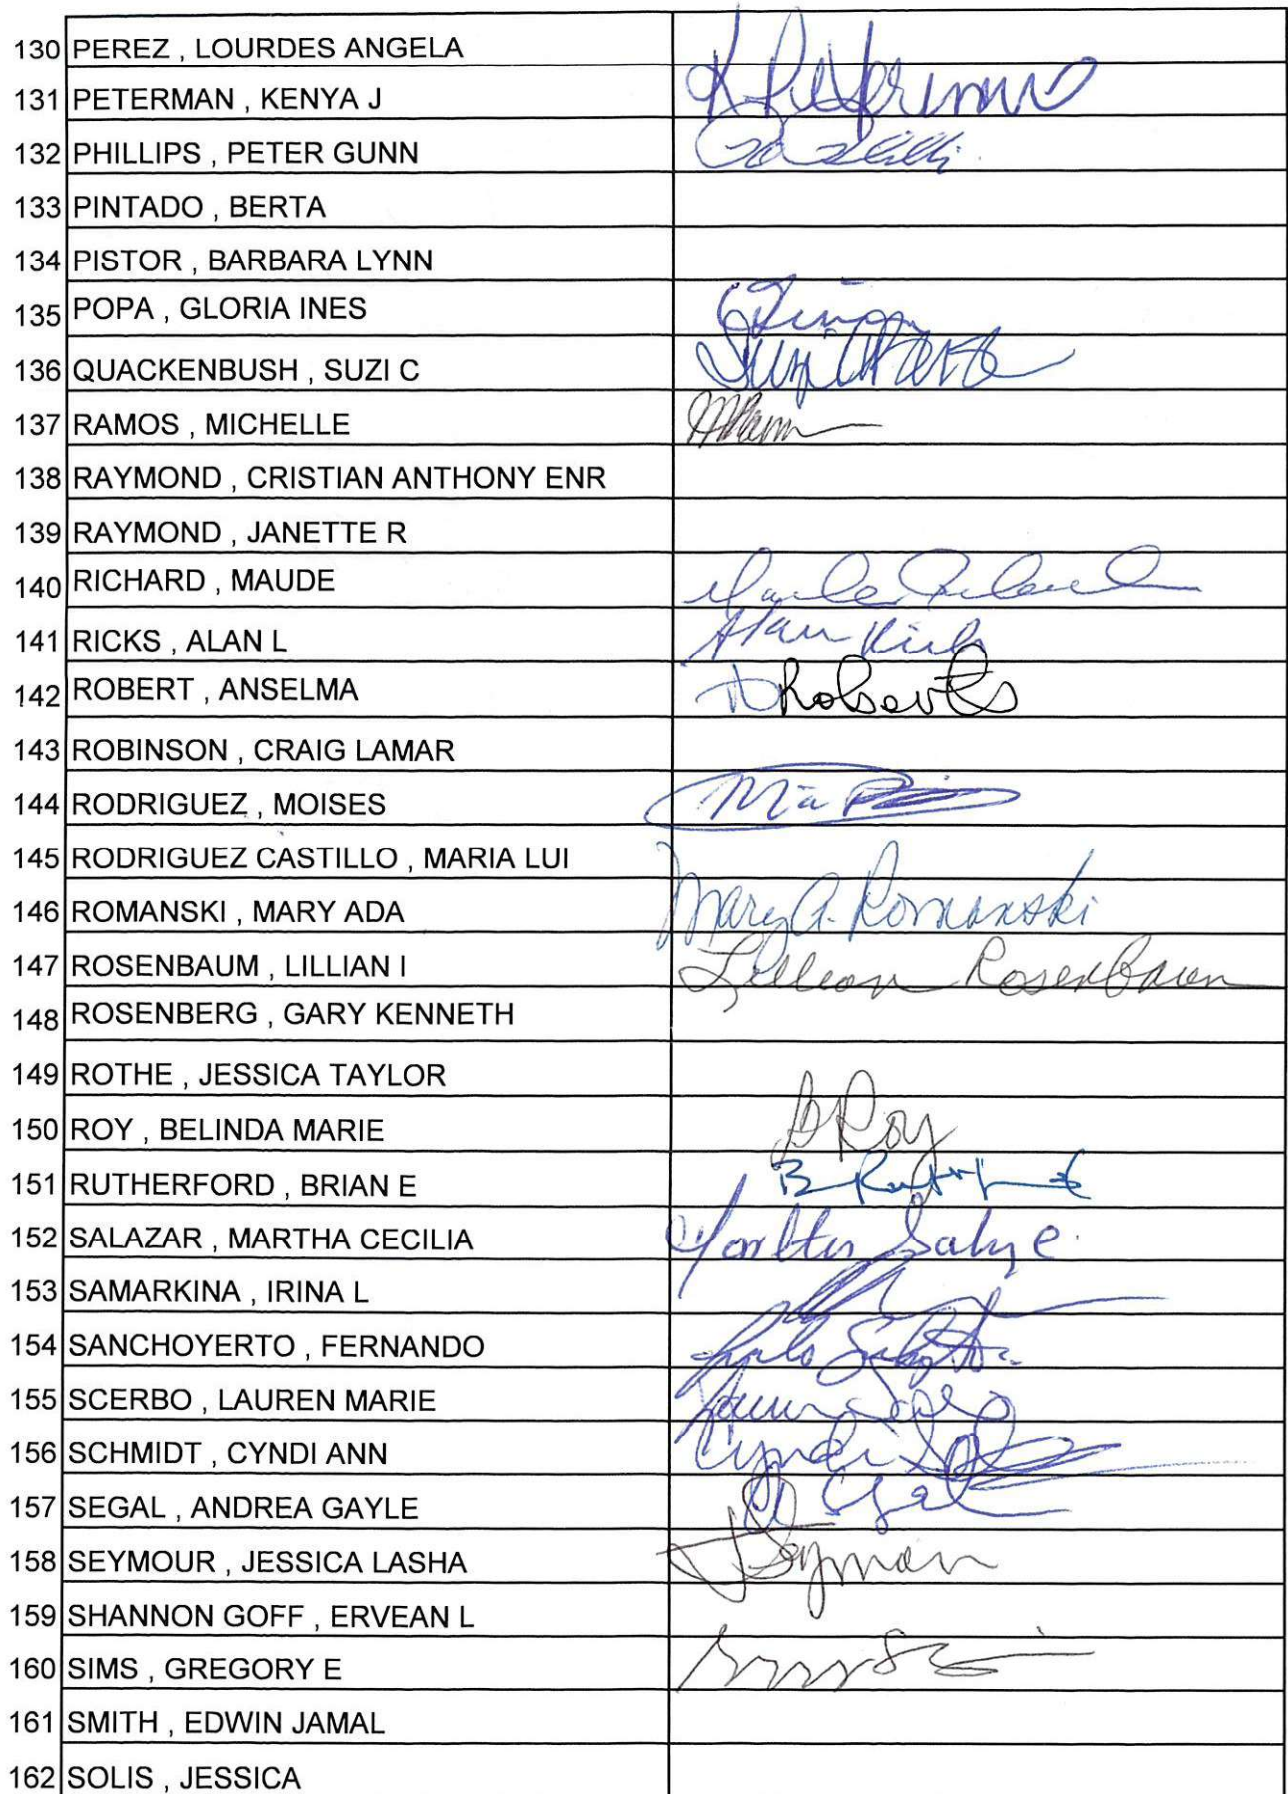 130 PEREZ , LOURDES ANGELA
131 PETERMAN , KENYA J K Peterman
132 PHILLIPS , PETER GUNN
133 PINTADO , BERTA
134 PISTOR , BARBARA LYNN
135 POPA , GLORIA INES
136 QUACKENBUSH , SUZI C
137 RAMOS , MICHELLE
138 RAYMOND , CRISTIAN ANTHONY ENR
139 RAYMOND , JANETTE R
140 RICHARD , MAUDE
141 RICKS , ALAN L Alan Ricks
142 ROBERT , ANSELMA
143 ROBINSON , CRAIG LAMAR
144 RODRIGUEZ , MOISES
145 RODRIGUEZ CASTILLO , MARIA LUI
146 ROMANSKI , MARY ADA Mary A. Romanski
147 ROSENBAUM , LILLIAN I Lillian Rosenbaum
148 ROSENBERG , GARY KENNETH
149 ROTHE , JESSICA TAYLOR
150 ROY , BELINDA MARIE B Roy
151 RUTHERFORD , BRIAN E
152 SALAZAR , MARTHA CECILIA
153 SAMARKINA , IRINA L
154 SANCHOYERTO , FERNANDO
155 SCERBO , LAUREN MARIE
156 SCHMIDT , CYNDI ANN Cyndi
157 SEGAL , ANDREA GAYLE
158 SEYMOUR , JESSICA LASHA
159 SHANNON GOFF , ERVEAN L
160 SIMS , GREGORY E
161 SMITH , EDWIN JAMAL
162 SOLIS , JESSICA